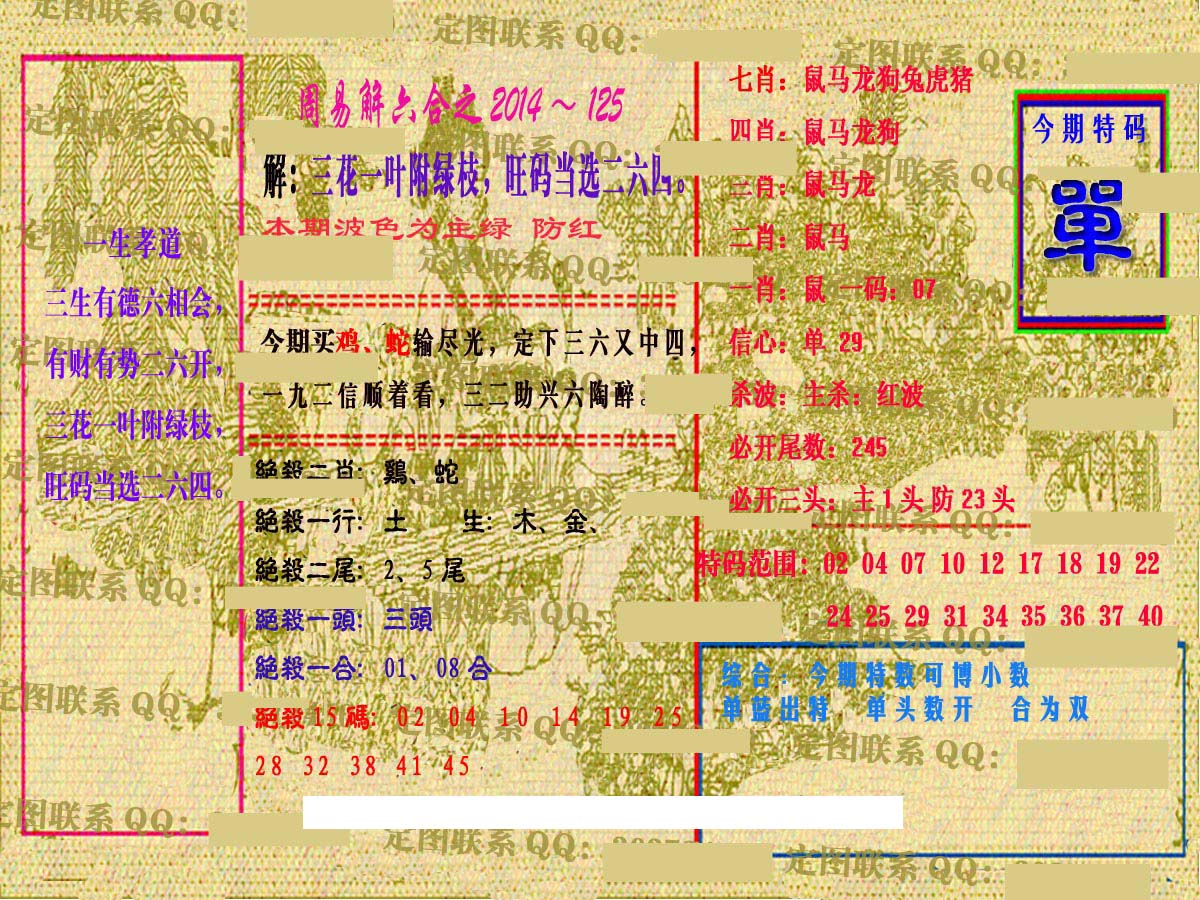 周易解六合之2014～125
解：三花一叶附绿枝，旺码当选二六四。
本期波色为主绿 防红
一生孝道
三生有德六相会，
有财有势二六开，
三花一叶附绿枝，
旺码当选二六四。
今期买鸡、蛇输尽光，定下三六又中四，
一九二信顺着看，三二助兴六陶醉。
絕殺二肖：鷄、蛇
絕殺一行：土 生：木、金、
絕殺二尾：2、5尾
絕殺一頭：三頭
絕殺一合：01、08合
絕殺15碼：02 04 10 14 19 25
28 32 38 41 45
七肖：鼠马龙狗兔虎猪
四肖：鼠马龙狗
三肖：鼠马龙
二肖：鼠马
一肖：鼠 一码：07
信心：单 29
杀波：主杀：红波
必开尾数：245
必开三头：主1头防23头
今期特码
單
特码范围：02 04 07 10 12 17 18 19 22
24 25 29 31 34 35 36 37 40
综合：今期特数可博小数
单蓝出特 单头数开 合为双
定图联系QQ：
定图联系QQ：
定图联系QQ：
定图联系QQ：
定图联系QQ：
定图联系QQ：
定图联系QQ：
定图联系QQ：
定图联系QQ：
定图联系QQ：